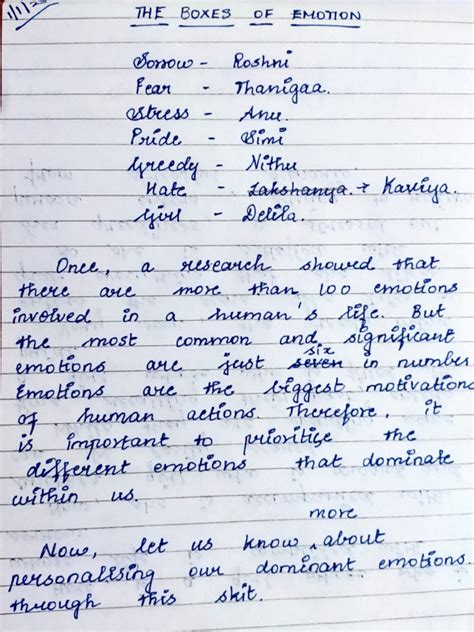 1/1/23
THE BOXES OF EMOTION
Sorrow - Roshni
Fear - Thanigaa.
Stress - Anu.
Pride - Simi
Greedy - Nithu
Hate - Lakshanya. → Kaviya.
Girl - Delila.
Once, a research showed that
there are more than 100 emotions
involved in a human's life. But
the most common and significant
emotions are just seven six in number
Emotions are the biggest motivations
of human actions. Therefore, it
is important to prioritize the
different emotions that dominate
within us.
more
Now, let us know ^ about
personalising our dominant emotions.
through this skit.